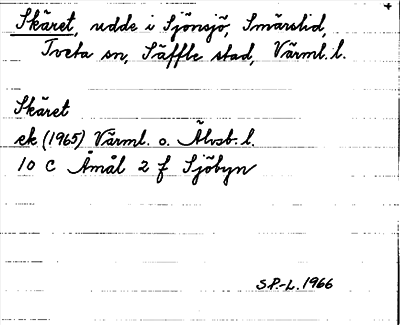 Skäret, udde i Sjönsjö, Smärslid,
Tveta sn, Säffle stad, Värml. l.
Skäret
ek (1965) Värml. o. Älvsb. l.
10 C Åmål 2 f Sjöbyn
S.P.-L. 1966